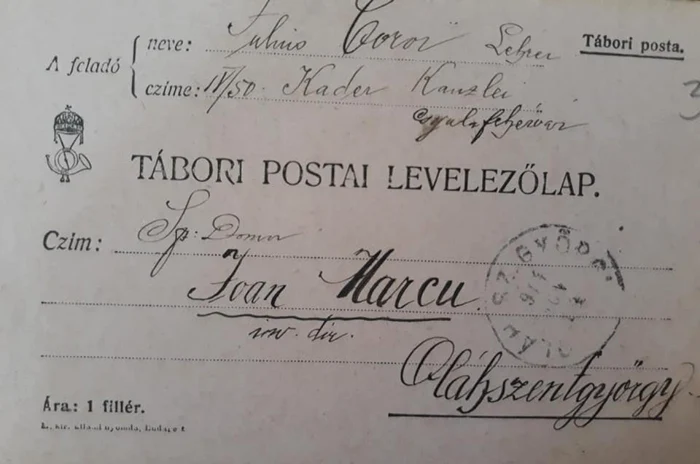 Tábori posta.
A feladó
neve: Iulius Coroi Lehrer
czíme: IV/50. Kader Kanzlei
Gyulafehérvár
TÁBORI POSTAI LEVELEZŐLAP.
Czim: Sp. Domn
Ioan Marcu
inv. dir.
Oláhszentgyörgy
Ára: 1 fillér.